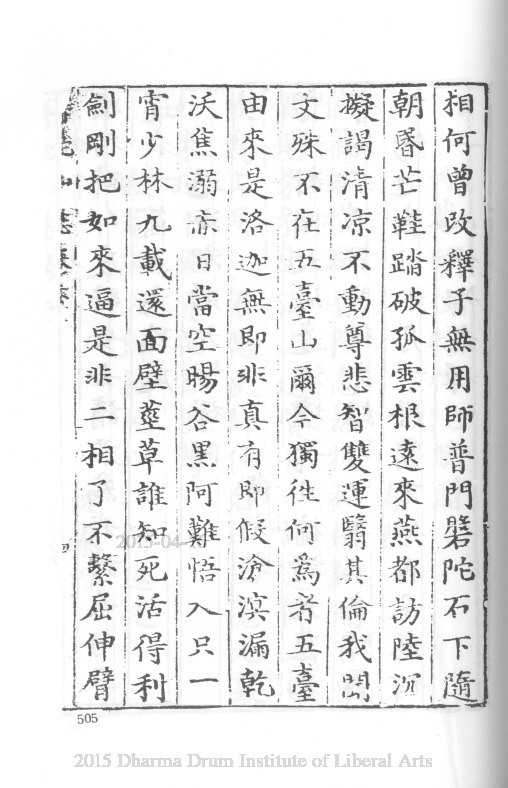 相何曾改釋子無用師普門磐陀石下隨
朝昏芒鞋踏破孤雲根遠來燕都訪陸沉
擬謁清凉不動尊悲智雙運翳其倫我聞
文殊不在五臺山爾今獨徃何為者五臺
由來是洛迦無即非真有即假滄溟漏乾
沃焦溺赤日當空暘谷黑阿難悟入只一
宵少林九載還面壁莖草誰知死活得利
劍剛把如來逼是非二相了不繫屈伸臂
505
2013-04-
2015 Dharma Drum Institute of Liberal Arts